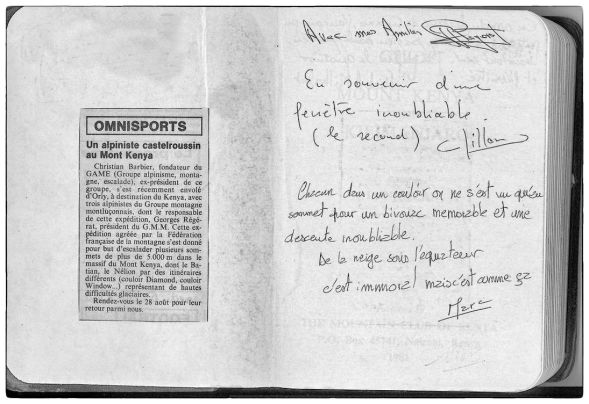 OMNISPORTS
Un alpiniste castelroussin
au Mont Kenya
Christian Barbier, fondateur du
GAME (Groupe alpinisme, monta-
gne, escalade), ex-président de ce
groupe, s'est récemment envolé
d'Orly, à destination du Kenya, avec
trois alpinistes du Groupe montagne
montluçonnais, dont le responsable
de cette expédition, Georges Régé-
rat, président du G.M.M. Cette ex-
pédition agréée par la Fédération
française de la montagne s'est donné
pour but d'escalader plusieurs som-
mets de plus de 5.000 m dans le
massif du Mont Kenya, dont le Ba-
tian, le Nélion par des itinéraires
différents (couloir Diamond, couloir
Window...) représentant de hautes
difficultés glaciaires.
Rendez-vous le 28 août pour leur
retour parmi nous.
Avec mes Amitiés
En souvenir d'une
fenêtre inoubliable.
(le second)
Chacun dans un couloir on ne s'est vu qu'au
sommet pour un bivouac memorable et une
descente inoubliable.
De la neige sous l'équateur
c'est immoral mais c'est comme ça
Marc
THE MOUNTAIN CLUB OF KENYA
P.O. Box 45741, Nairobi, Kenya
1981